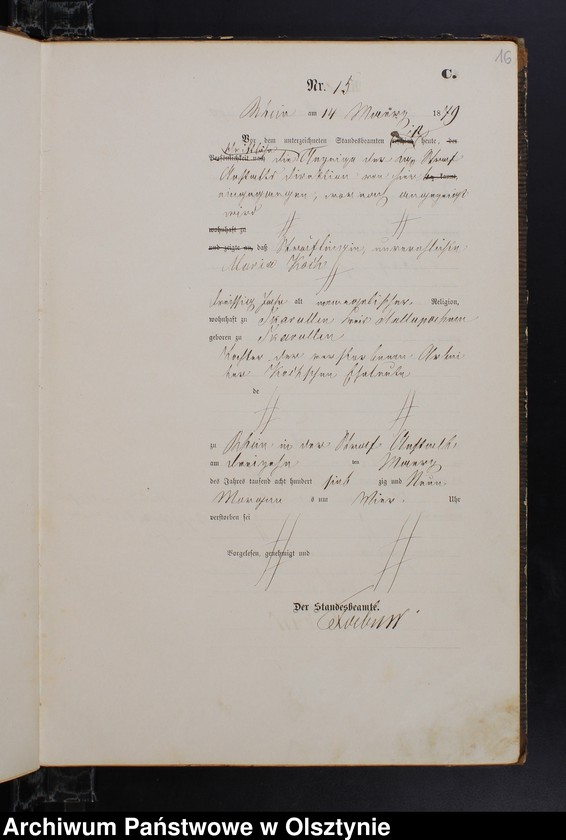 16
C.
Nr. 15
Rhein am 14 Maerz 1879
Vor dem unterzeichneten Standesbeamten heute, der
Persönlichkeit nach die Anzeige der Straf
Anstalts Direktion von hier kannt,
eingegangen, wonach angezeigt
wird
wohnhaft zu
und zeigte an, daß Sträflingin, unverehelichte
Maria Koch
dreissig Jahr alt evangelischer Religion,
wohnhaft zu Skarullen Kreis Stallupoehnen
geboren zu Skarullen
Tochter der verstorbenen Arbei
ter Kochschen Eheleute
de
zu Rhein in der Straf Anstalt
am dreizehn ten Maerz
des Jahres tausend acht hundert sieb zig und Neun
Morgen s um Vier Uhr
verstorben sei
Vorgelesen, genehmigt und
Der Standesbeamte.
Archiwum Państwowe w Olsztynie